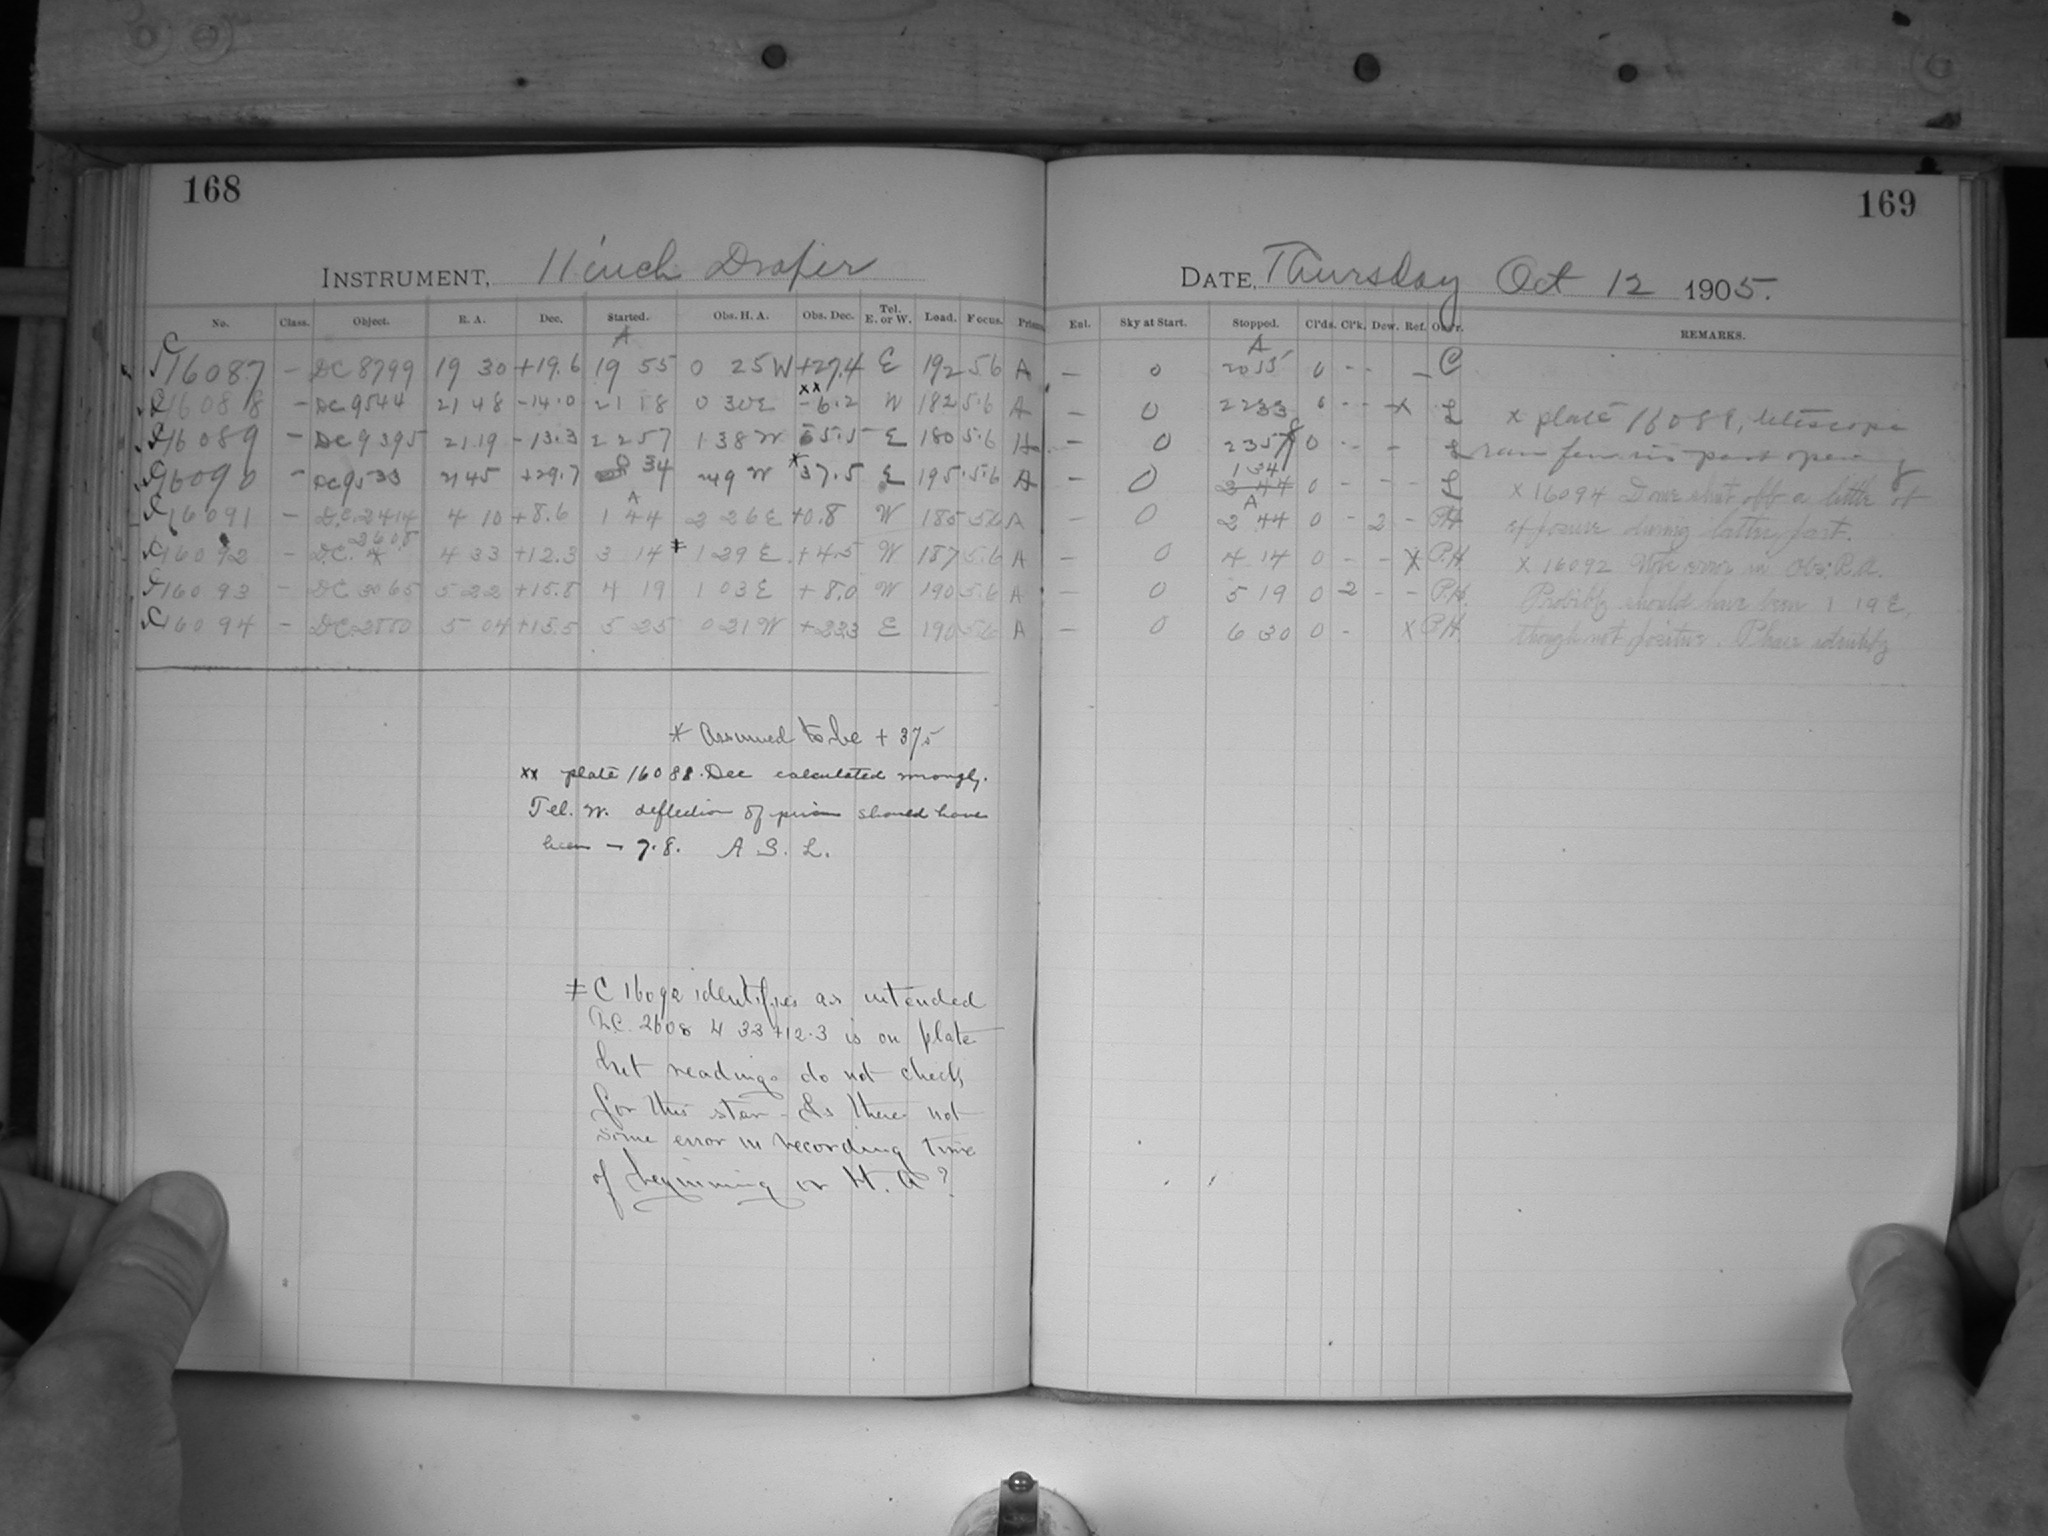 168
INSTRUMENT, 11 inch Draper
No. Class. Object. R. A. Dec. Started. Obs. H. A. Obs. Dec. Tel. E. or W. Load. Focus. Prism
A
C 16087 – DC 8799 19 30 +19.6 19 55 0 25 W +27.4 E 192 56 A
xx
C 16088 – DC 9544 21 48 -14.0 21 18 0 30 E -6.2 W 182 5.6 A
C 16089 – DC 9395 21 19 -13.3 22 57 1 38 W 5.5 E 180 5.6 A
C 16090 – DC 9533 21 45 +29.7 0 34 2 49 W *37.5 E 195 5.6 A
A
C 16091 – D.C. 2414 4 10 +8.6 1 44 2 26 E +0.8 W 185 5.6 A
2608
C 16092 – D.C. 4 33 +12.3 3 14 ‡ 1 29 E +4.5 W 187 5.6 A
C 16093 – DC 3065 5 22 +15.8 4 19 1 03 E +8.0 W 190 5.6 A
C 16094 – DC 5 04 +15.5 5 25 0 21 W +23.3 E 190 5.6 A
* Assumed to be + 37.5
xx plate 16088. Dec calculated wrongly.
Tel. W. deflection of prism should have
been – 7.8. A S. L.
‡ C 16092 identifies as intended
D.C. 2608 4 33 +12.3 is on plate
but readings do not check
for this star – Is there not
some error in recording time
of beginning or H. A?
169
DATE, Thursday Oct 12 1905.
Enl. Sky at Start. Stopped. Cl'ds. Cl'k. Dew. Ref. Obs'r. REMARKS.
A
– 0 20 55 0 - - – C
– 0 22 33 0 - - x L
– 0 23 57 0 - - - L
1 34
– 0 2 44 0 - - - L
A
– 0 2 44 0 - 2 - P.H.
– 0 4 14 0 - - x P.H.
– 0 5 19 0 2 - - P.H.
– 0 6 30 0 - x P.H.
x plate 16089, telescope
ran few min past opening
x 16094 Dome shut off a little of
exposure during latter part.
x 16092 error in Obs. R.A.
Probably should have been 1 19 E,
though not positive. Please identify